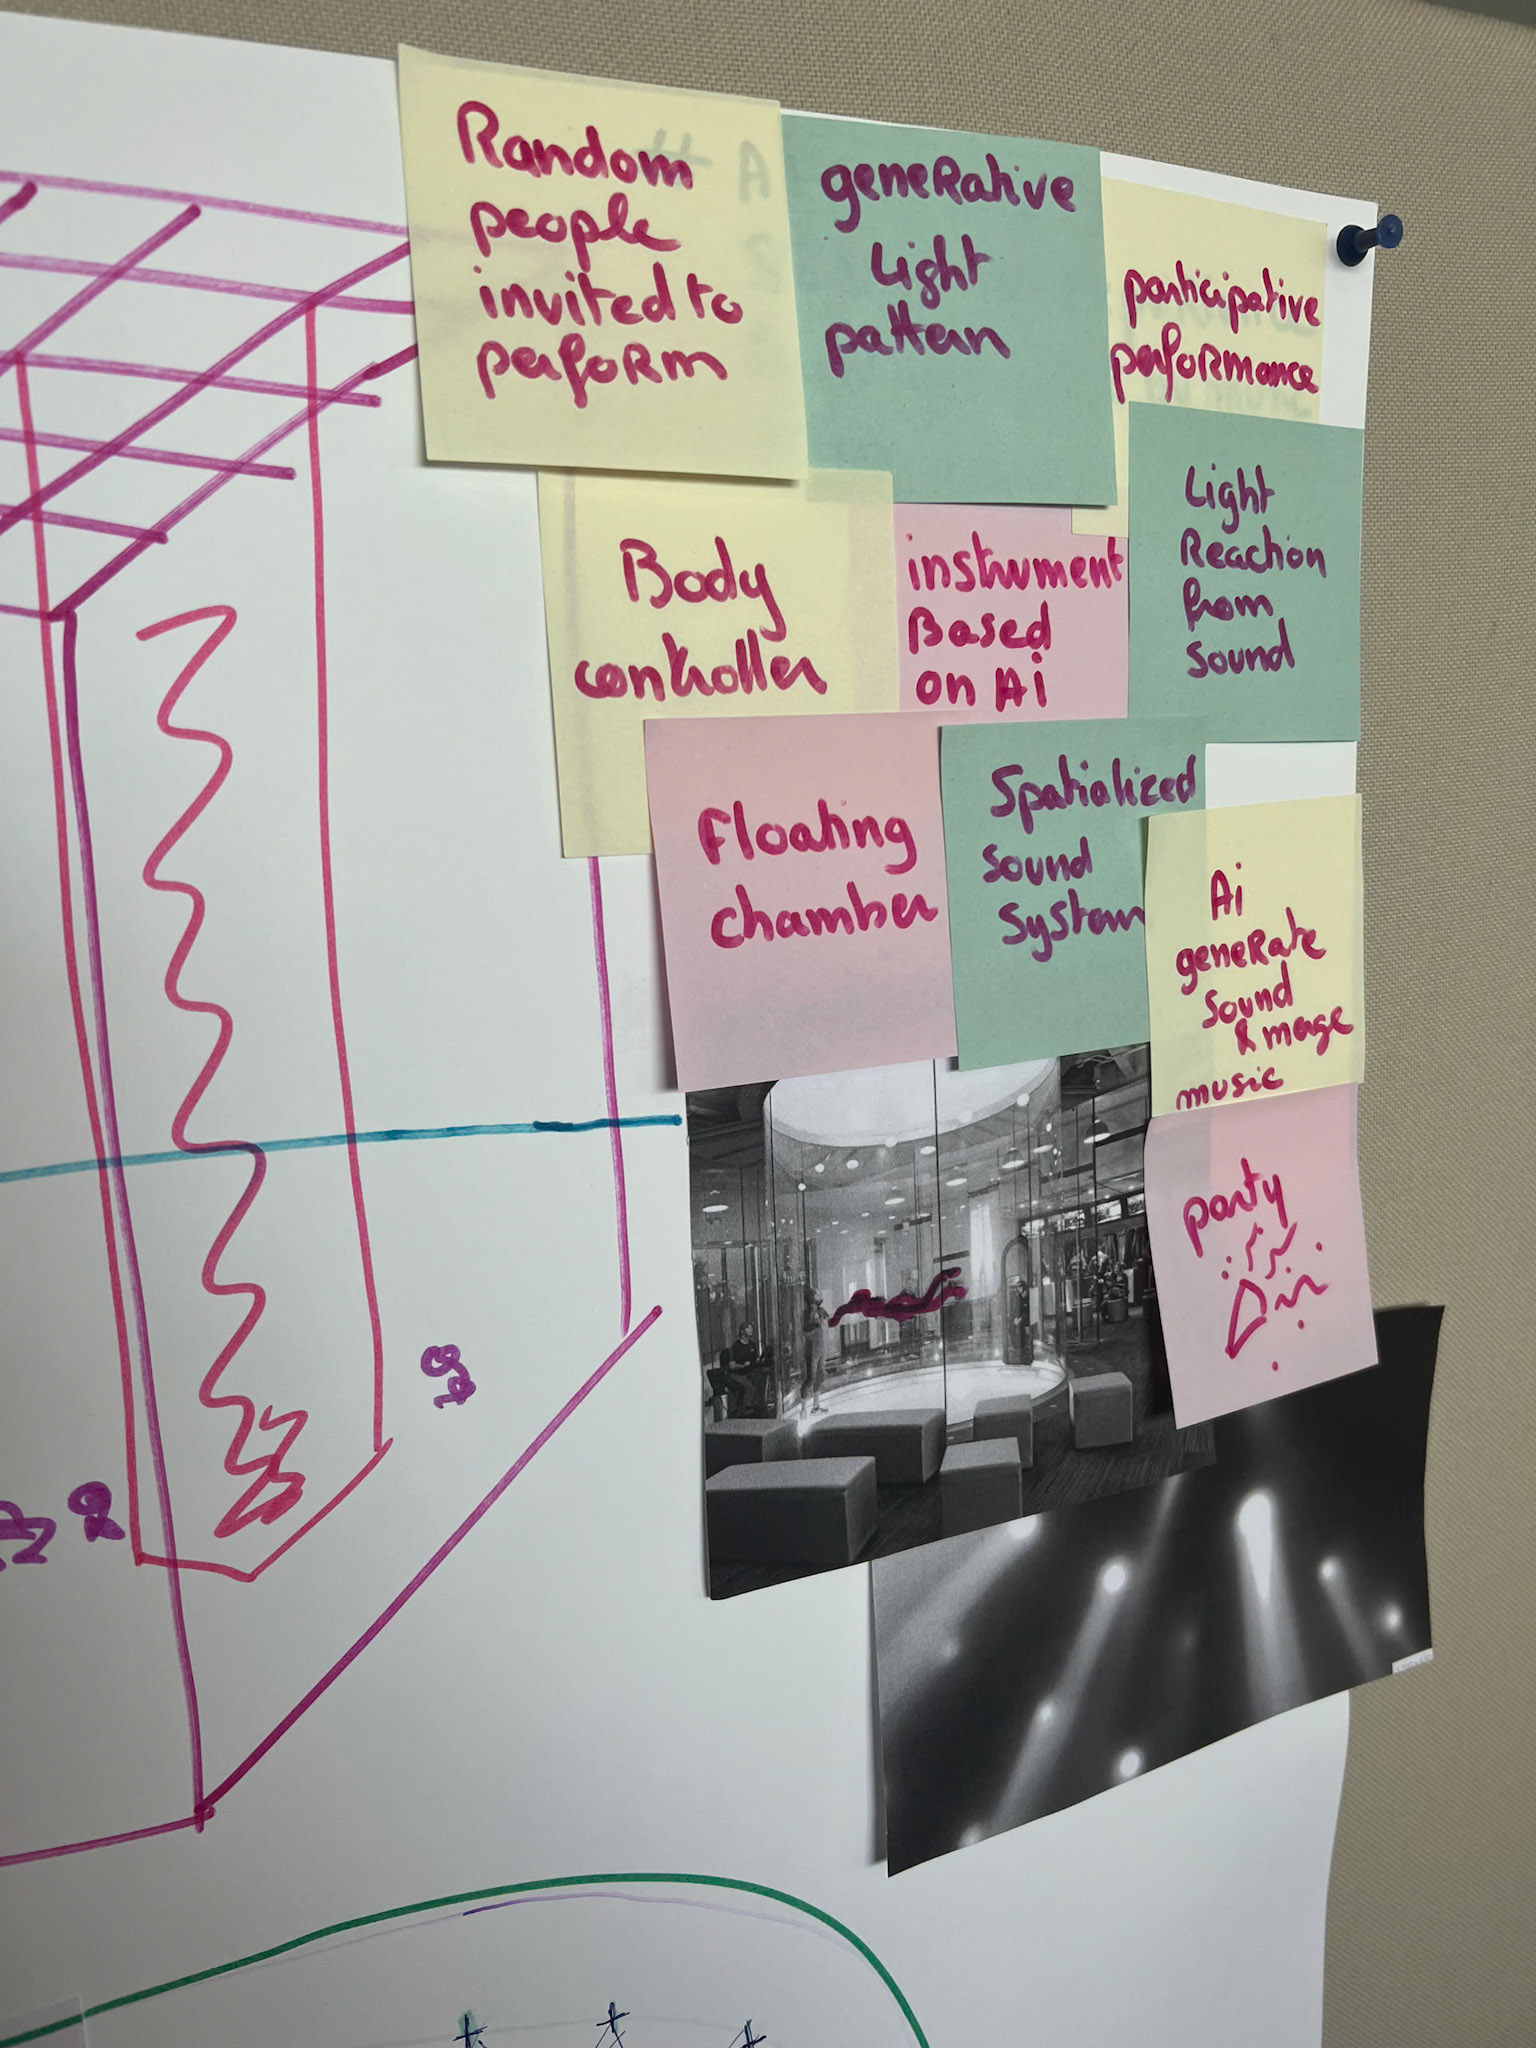 Random
people
invited to
perform
generative
Light
pattern
participative
performance
Body
controller
instrument
Based
on Ai
Light
Reaction
from
sound
Floating
chamber
Spatialized
sound
System
Ai
geneRate
sound
& merge
music
party